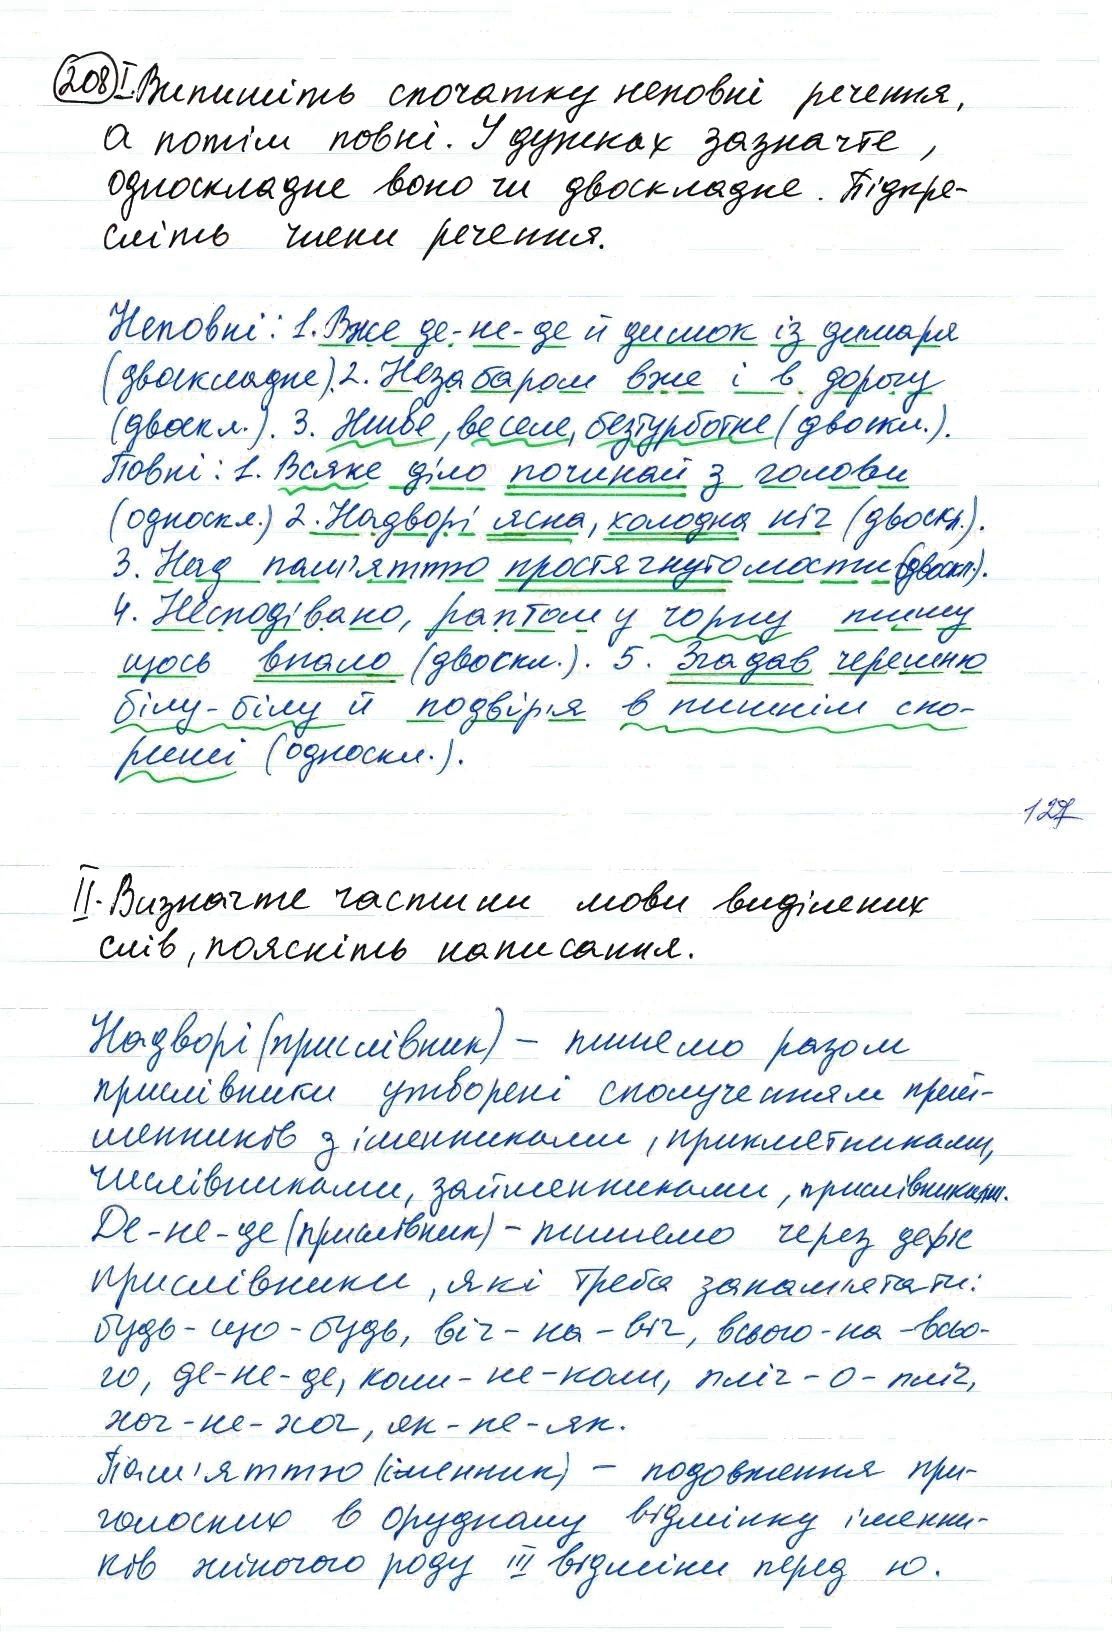 208 I. Випишіть спочатку неповні речення,
а потім повні. У дужках зазначте,
односкладне воно чи двоскладне. Підкре-
сліть члени речення.
Неповні: 1. Вже де-не-де й димок із димаря
(двоскладне). 2. Незабаром вже і в дорогу
(двоскл.). 3. Живе, веселе, безтурботне (двоскл.).
Повні: 1. Всяке діло починай з голови
(односкл.) 2. Надворі ясна, холодна ніч (двоскл.).
3. Над пам'яттю простягнуто мости (двоскл.).
4. Несподівано, раптом у чорну тишу
щось впало (двоскл.). 5. Згадав черешню
білу-білу й подвір'я в пишнім спо-
риші (односкл.).
127
II. Визначте частини мови виділених
слів, поясніть написання.
Надворі (прислівник) – пишемо разом
прислівники утворені сполученням прий-
менників з іменниками, прикметниками,
числівниками, займенниками, прислівниками.
Де-не-де (прислівник) – пишемо через дефіс
прислівники, які треба запам'ятати:
будь-що-будь, віч-на-віч, всього-на-всьо-
го, де-не-де, коли-не-коли, пліч-о-пліч,
хоч-не-хоч, як-не-як.
Пам'яттю (іменник) – подовження при-
голосних в орудному відмінку іменни-
ків жіночого роду III відміни перед ю.